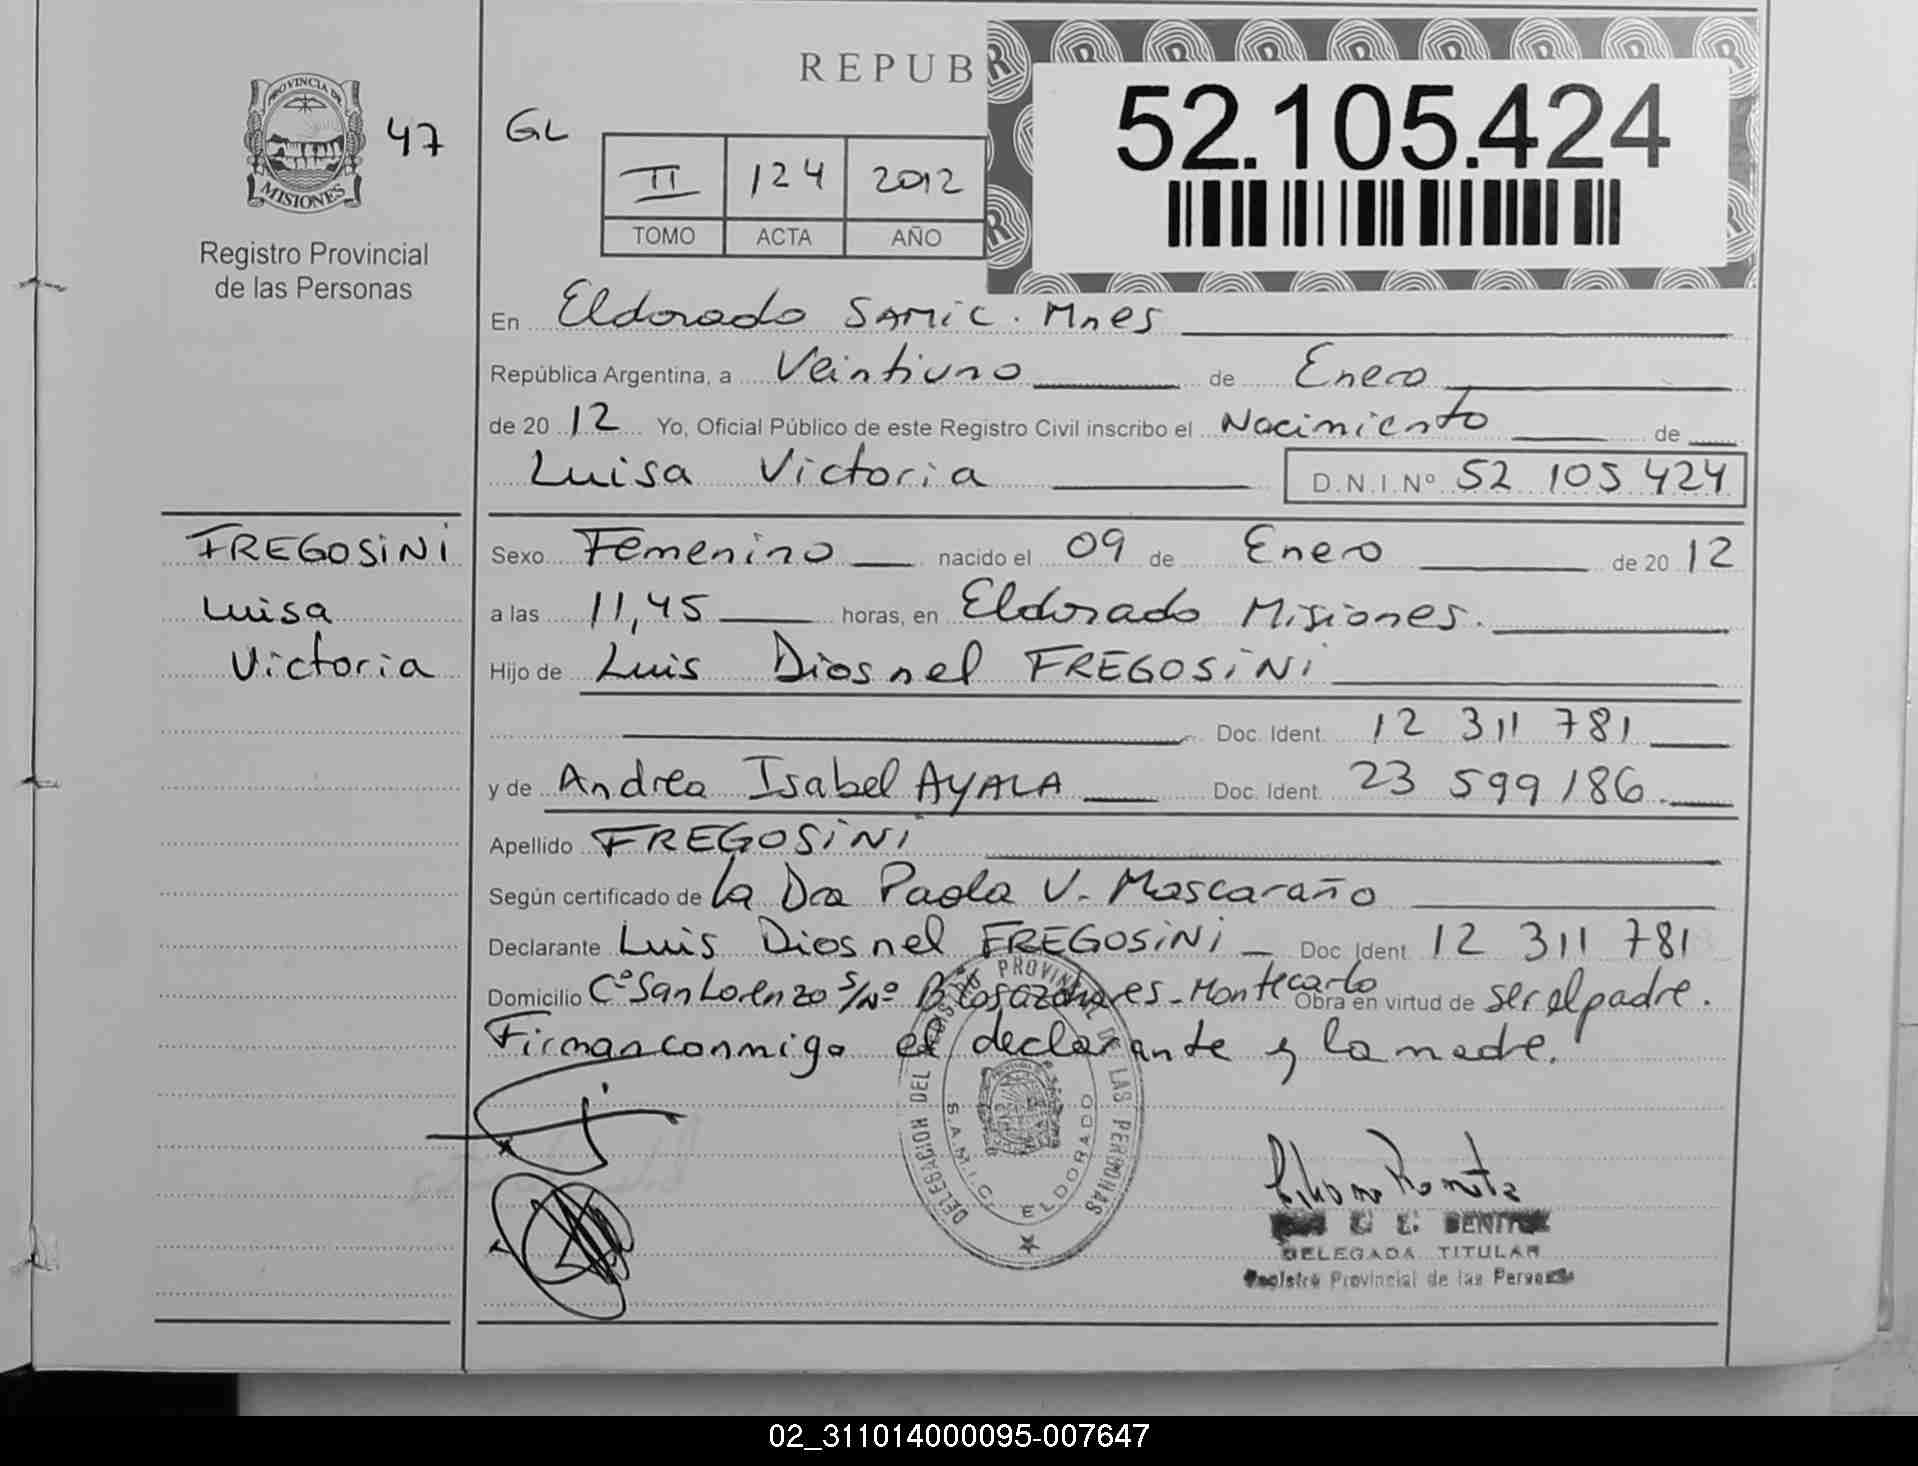 REPUB
52.105.424
PROVINCIA DE
MISIONES
47
GL
II 124 2012
TOMO ACTA AÑO
Registro Provincial
de las Personas
En Eldorado SAMiC. Mnes
República Argentina, a Veintiuno de Enero
de 2012 Yo, Oficial Público de este Registro Civil inscribo el Nacimiento de
Luisa Victoria D.N.I.Nº 52 105 424
FREGOSiNi
Luisa
Victoria
Sexo Femenino nacido el 09 de Enero de 2012
a las 11,45 horas, en Eldorado Misiones.
Hijo de Luis Diosnel FREGOSiNi
Doc. Ident. 12 311 781
y de Andrea Isabel AYALA Doc. Ident. 23 599 186.
Apellido FREGOSiNi
Según certificado de la Dra Paola V. Mascaraño
Declarante Luis Diosnel FREGOSiNi Doc. Ident. 12 311 781
Domicilio Cº San Lorenzo S/Nº B Los azahares - Montecarlo Obra en virtud de ser el padre.
Firman conmigo el declarante y la madre.
DELEGACION DEL REGISTRO PROVINCIAL DE LAS PERSONAS
S.A.M.I.C. ELDORADO
BENITEZ
DELEGADA TITULAR
Registro Provincial de las Personas
02_311014000095-007647